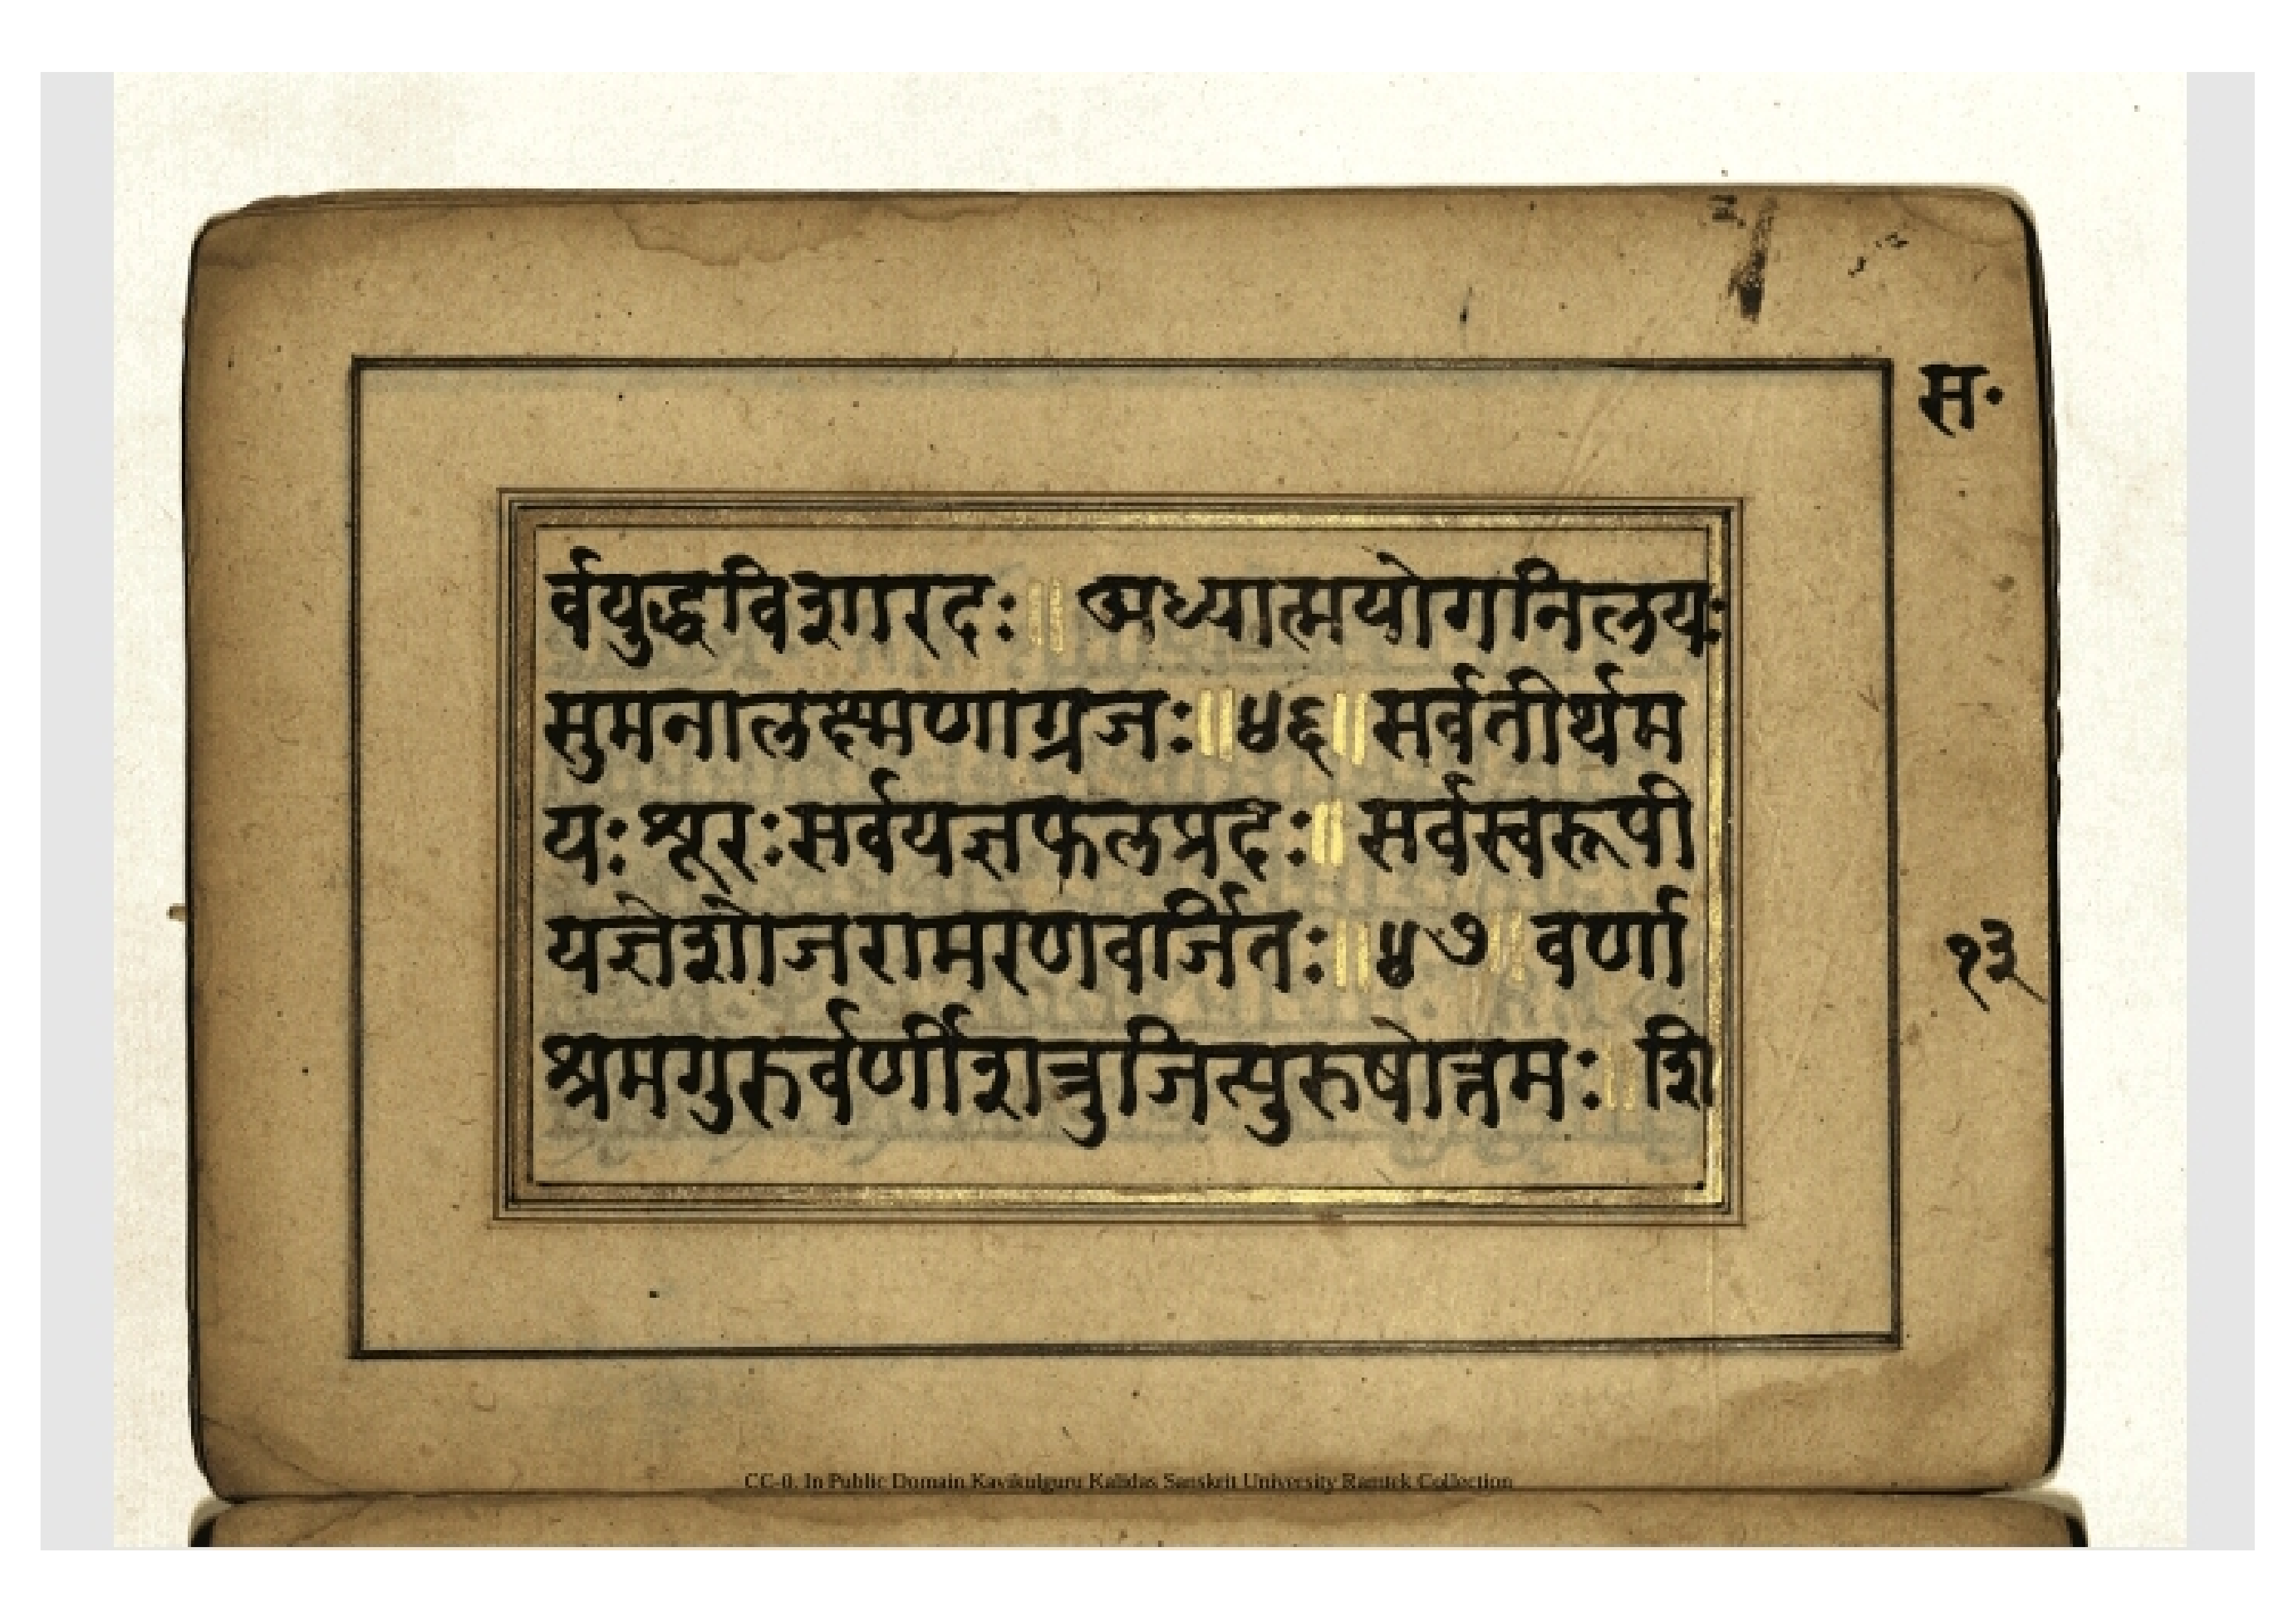 स॰
र्वयुद्धविशारदः ॥ अध्यात्मयोगनिलयः
सुमनालक्ष्मणाग्रजः ॥ ४६ ॥ सर्वतीर्थम
यः शूरः सर्वयज्ञफलप्रदः ॥ सर्वस्वरूपी
यज्ञेशोजरामरणवर्जितः ॥ ४७ ॥ वर्णा
१३
श्रमगुरुर्वर्णीशत्रुजित्पुरुषोत्तमः ॥ शि
CC-0. In Public Domain Kavikulguru Kalidas Sanskrit University Ramtek Collection